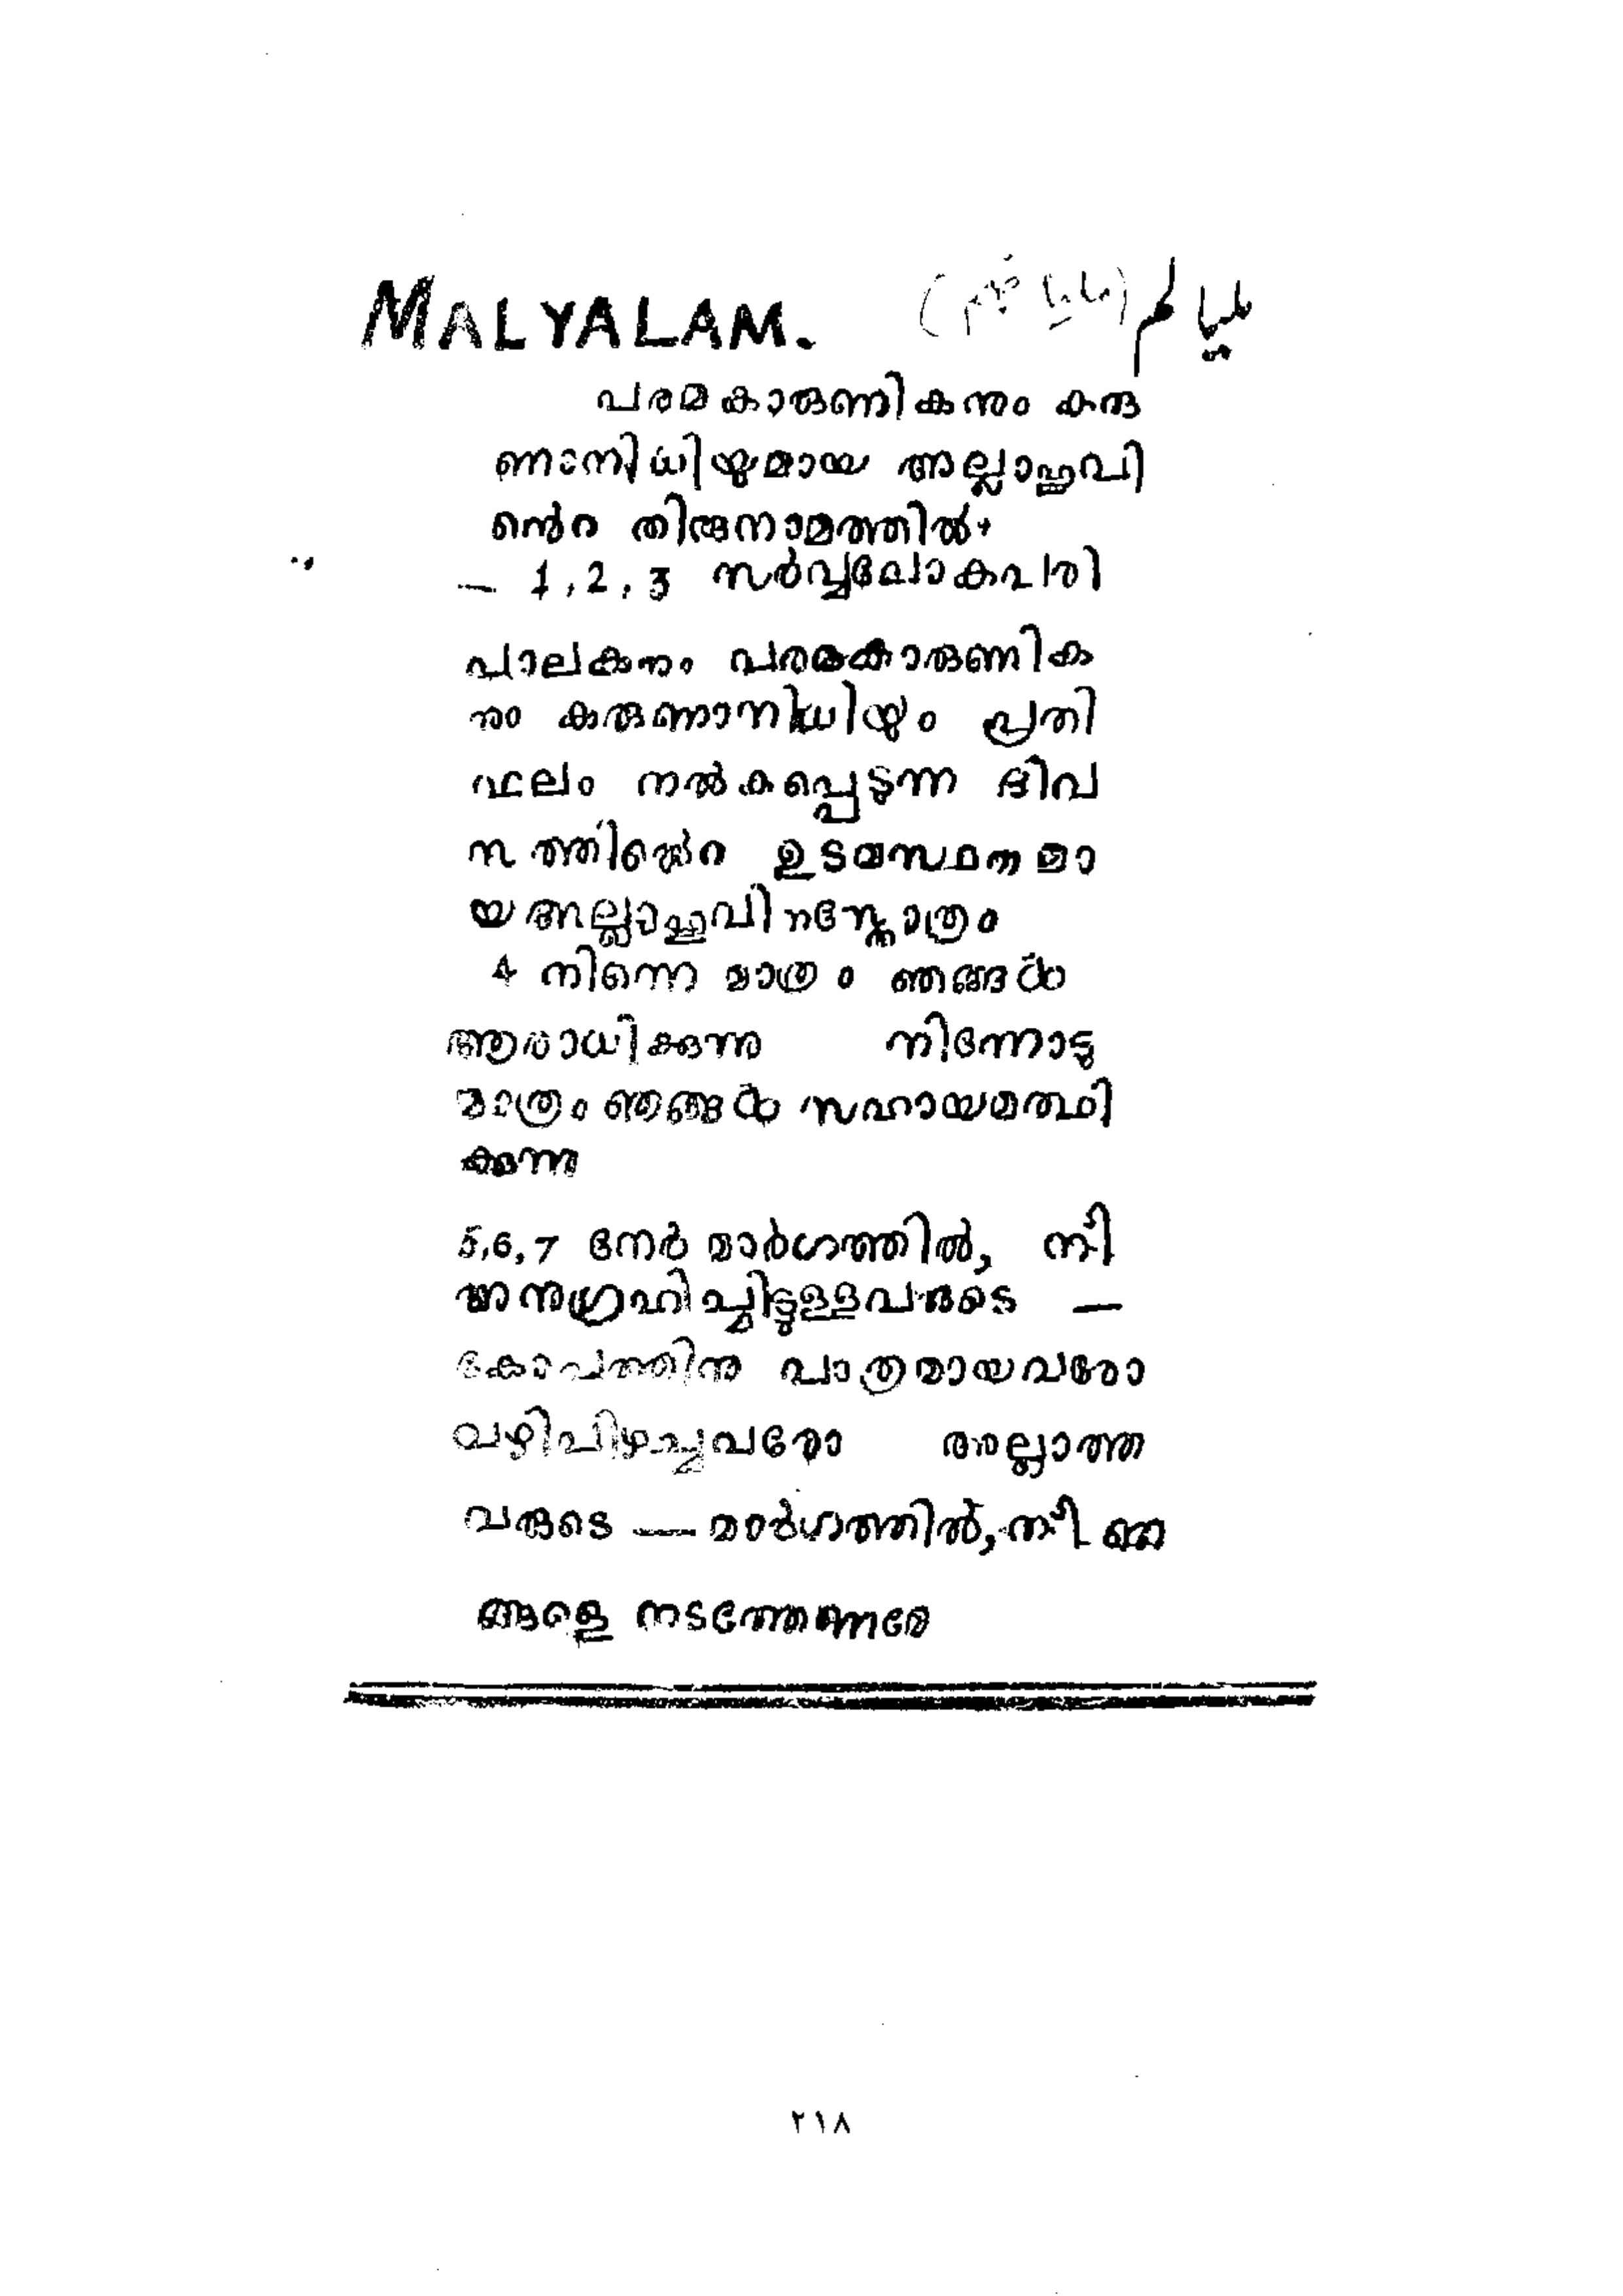 MALYALAM. ملیالم (ملیالم)
പരമകാരുണികനും കരു
ണാനിധിയുമായ അല്ലാഹുവി
ൻെറ തിരുനാമത്തിൽ.
— 1,2,3 സർവ്വലോകപരി
പാലകനും പരമകാരുണിക
നും കരുണാനിധിയും പ്രതി
ഫലം നൽകപ്പെടുന്ന ദിവ
സത്തിൻെറ ഉടമസ്ഥനുമാ
യ അല്ലാഹുവിന്നസ്തോത്രം
4 നിന്നെ മാത്രം ഞങ്ങൾ
ആരാധിക്കുന്നു നിന്നോടു
മാത്രം ഞങ്ങൾ സഹായമത്ഥി
ക്കുന്നു
5,6,7 നേർ മാർഗത്തിൽ, നീ
അനുഗ്രഹിച്ചിട്ടുള്ളവരുടെ —
കോപത്തിനു പാത്രമായവരോ
വഴിപിഴച്ചവരോ അല്ലാത്ത
വരുടെ — മാർഗത്തിൽ, നീ ഞ
ങ്ങളെ നടത്തേണമേ
٢١٨